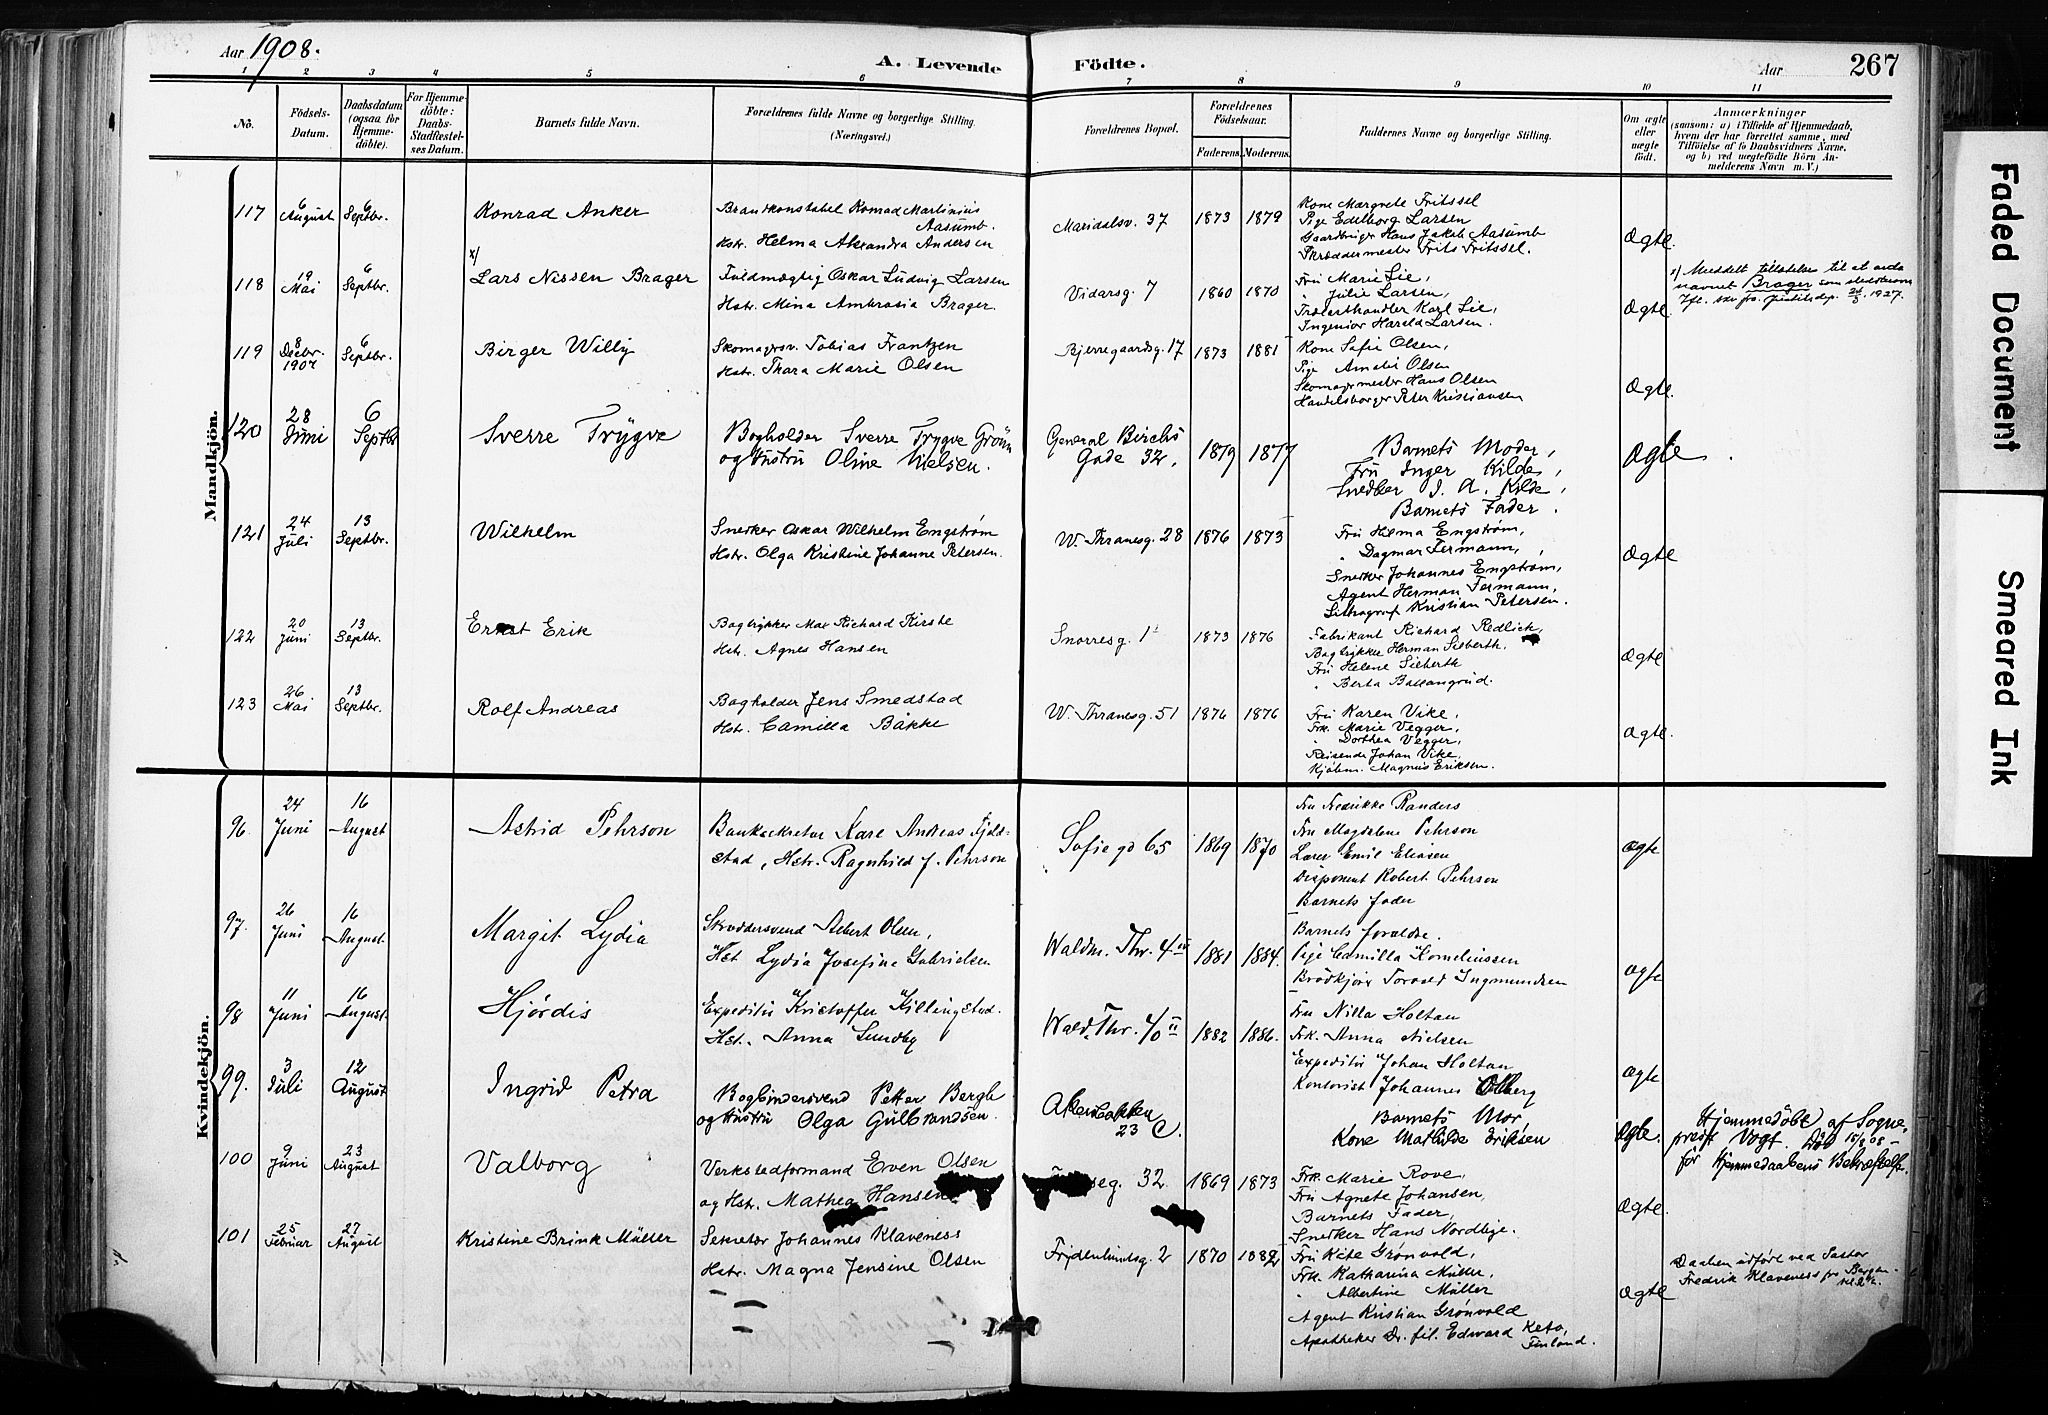 Aar 1908.
A. Levende Födte.
Aar
267
1 2 3 4 5 6 7 8 9 10 11
No.
Födsels-
Datum.
Daabsdatum
(ogsaa for
Hjemme-
döbte).
For Hjemme-
döbte:
Daabs-
Stadfæstel-
ses Datum.
Barnets fulde Navn.
Forældrenes fulde Navne og borgerlige Stilling.
(Næringsvei.)
Forældrenes Bopæl.
Forældrenes
Födselsaar.
Faderens. Moderens.
Faddernes Navne og borgerlige Stilling.
Om ægte
eller
uægte
födt.
Anmærkninger
(saasom: a) i Tilfælde af Hjemmedaab,
hvem der har forrettet samme, med
Tilföielse af to Daabsvidners Navne,
og b) ved uægtefödte Börn An-
melderens Navn m. V.)
Mandkjön.
117
6
August
6
Septbr.
Konrad Anker
Brandkonstabel Konrad Martinius
Aasumb.
Hstr. Helma Alexandra Andersen
Maridalsv. 37
1873
1879
Kone Margrete Fritssel
Pige Edelborg Larsen
Gaardbruger Hans Jakob Aasumb
Skræddermester Frits Fritssel.
Ægte.
118
19
Mai
6
Septbr.
x)
Lars Nissen Brager
Fuldmægtig Oskar Ludvig Larsen
Hstr. Mina Ambrosia Brager.
Vidarsg. 7
1860
1870
Fru Marie Lie,
" Julie Larsen,
Trælasthandler Karl Lie,
Ingeniør Harald Larsen.
Ægte.
x) Meddelt tillatelse til at anta
navnet Brager som slektsnavn
Ifl. skr. fra justitsdep. 1927.
119
8
Decbr.
1907
6
Septbr.
Birger Willy
Skomagersv. Tobias Frantzen
Hstr. Thara Marie Olsen
Bjerregaardsg. 17
1873
1881
Kone Sofie Olsen,
Pige Amalie Olsen
Skomagermester Hans Olsen
Handelsborger Peter Kristiansen
Ægte.
120
28
Juni
6
Septbr
Sverre Trygve
Bogholder Sverre Trygve Grøm
og Hustru Oline Nielsen.
General Birchs
Gade 32.
1879
1877
Barnets Moder,
Fru Inger Kilde,
Snedker J. A. Kilde,
Barnets Fader.
Ægte.
121
24
Juli
13
Septbr.
Wilhelm
Snedker Oskar Wilhelm Engstrøm
Hstr. Olga Kristine Johanne Petersen.
W. Thranesg. 28
1876
1873
Fru Hilma Engstrøm,
" Dagmar Fermann,
Snedker Johannes Engstrøm,
Agent Herman Fermann,
Lithograf Kristian Petersen.
Ægte
122
20
Juni
13
Septbr.
Ernst Erik
Bogtrykker Max Richard Kirste
Hstr. Agnes Hansen
Snorresg. 1
1873
1876
Fabrikant Richard Redlich,
Bogtrykker Herman Sieberth,
Fru Helene Sieberth
" Berta Ballangrud.
Ægte
123
26
Mai
13
Septbr.
Rolf Andreas
Bogholder Jens Smedstad
Hstr. Camilla Bakke
W. Thranesg. 51
1876
1876
Fru Karen Vike,
Frk. Marie Vegger,
" Dorthea Vegger,
Reisende Johan Vike,
Kjøbm. Magnus Eriksen.
Ægte.
Kvindekjön.
96.
24
Juni
16
August
Astrid Pehrson
Banksekretær Kare Andreas Fjeld-
stad, Hstr. Ragnhild f. Pehrson
Sofie gd 65
1869
1870
Fru Fredrikke Randers
Fru Magdalene Pehrson
Lærer Emil Eliasen
Disponent Robert Pehrson
Barnets fader
Ægte
97.
26
Juni
16
August
Margit Lydia
Skræddersvend Albert Olsen,
Hst Lydia Josefine Gabrielsen
Waldm. Thr. 4 III
1881
1884.
Barnets forældre.
Pige Camilla Korneliussen
Brödkjörer Torvald Ingmundsen
Ægte
98
11
Juni
16
August.
Hjördis
Expeditör Kristoffer Killingstad.
Hst. Anna Sundby
Wald. Thr. 40 II
1882
1886.
Fru Nilla Holtan
Frk. Anna Nielsen
Expeditör Johan Holtan
Kontorist Johannes Olberg
Ægte
99.
3
Juli
12
August
Ingrid Petra
Bogbindersvend Petter Bergh
og Hustru Olga Gulbrandsen.
Akersbakken
23 C.
Barnets Mor
Kone Mathilde Eriksen
Ægte.
Hjemmedöbt af Sogne-
prest Vogt. Död 15/8 08 –
för Hjemmedaabens Bekræftelse.
100
9
Juni
23
August
Valborg
Verkstedformand Even Olsen
og Hstr. Mathea Hansen
eg. 32
1869
1873
Frk. Marie Rove,
Fru Agnete Johansen,
Barnets Fader,
Snedker Hans Nordbye.
Ægte.
101
25
Februar
27
August
Kristine Brink Müller
Sekretær Johannes Klaveness
Hstr. Magna Jensine Olsen
Frydenlundsg. 2
1870
1882
Fru Kite Grønvold,
Frk. Katharina Müller,
" Albertine Müller
Agent Kristian Grønvold
Apotheker Dr. fil. Edward Keto,
Finland.
Ægte
Daaben udført ved Pastor
Fredrik Klaveness fra Bergen
Faded Document
Smeared Ink